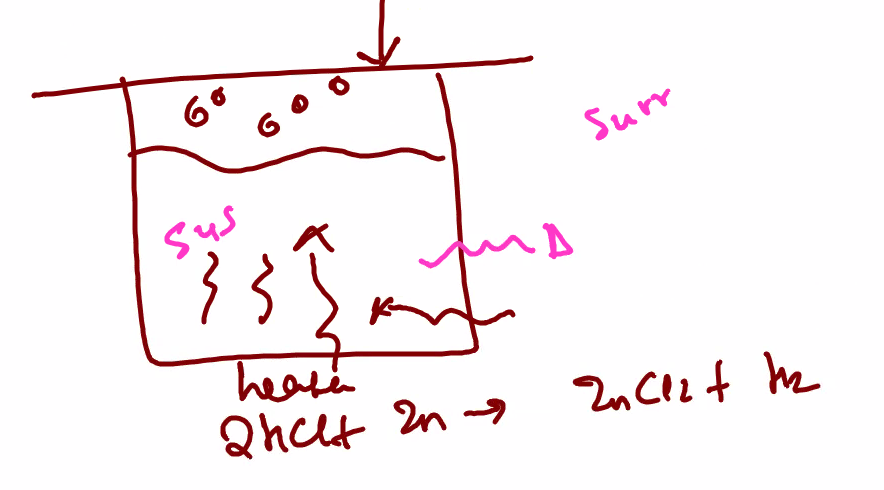 Surr
Sys
heater
2HCl + Zn → ZnCl2 + H2